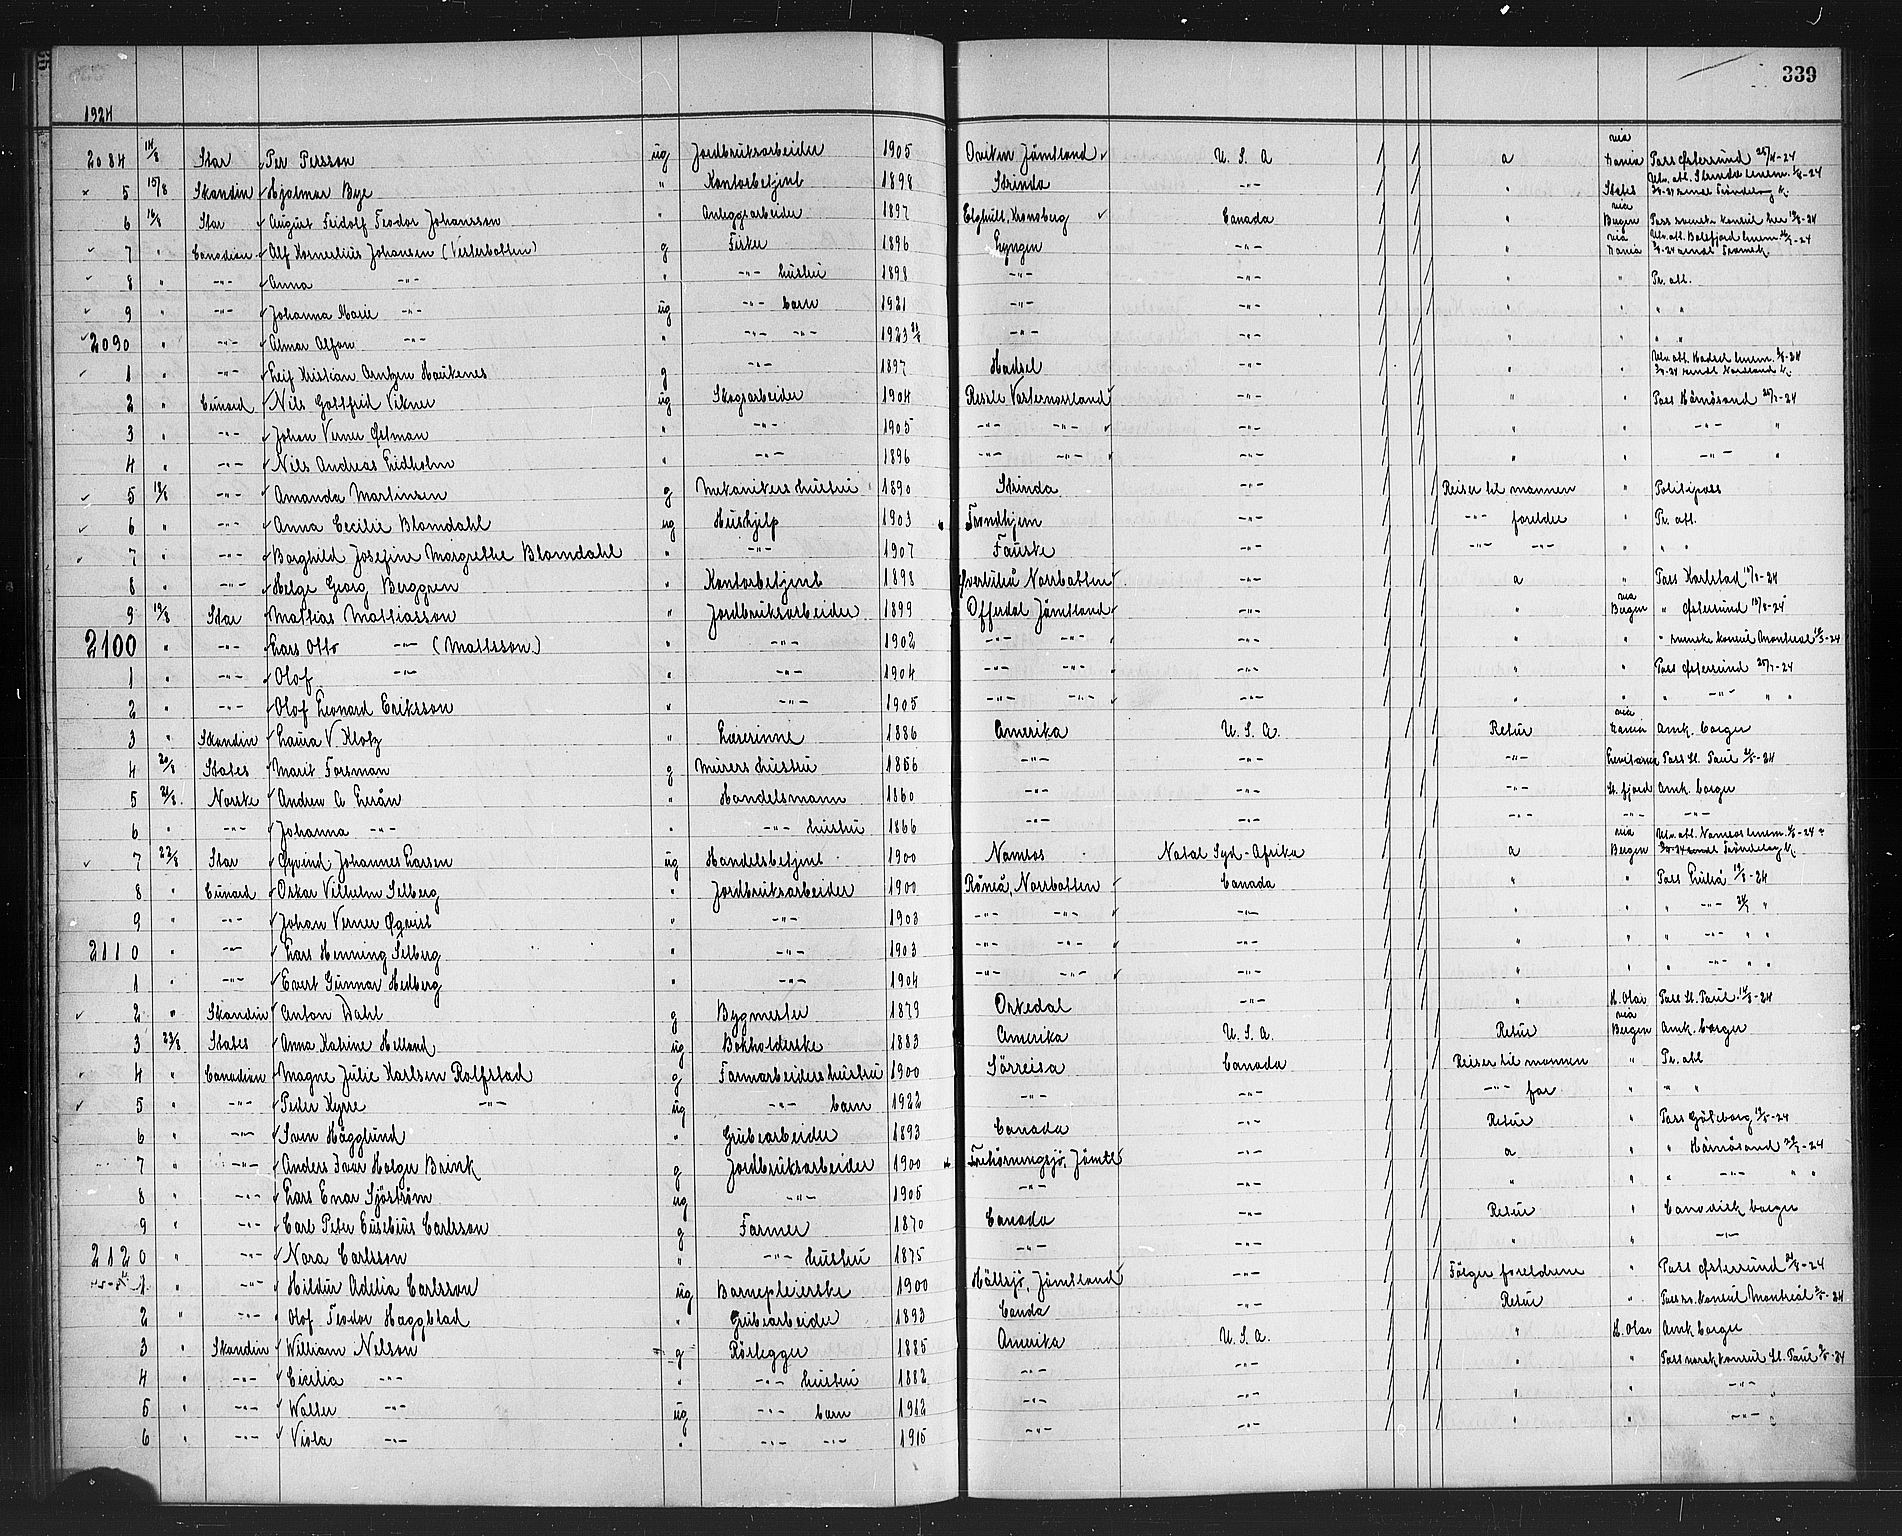 339
1924
2084 14/8 Star Per Persson ug Jordbruksarbeider 1905 Oviken Jämtland U. S. A a via Dania Pass Østersund 25/4-24
5 15/8 Skandin Hjalmar Bye " Kontorbetjent 1898 Strinda -"- " States
6 16/8 Star August Fridolf Teodor Johansson " Anleggsarbeider 1897 Elghult, Kronoberg Canada " via Bergen Pass svenske konsul her 19/8-24
7 " Canadian Alf Kornelius Johansen (Vesterbotten) g Fisker 1896 Lyngen -"- " via Dania
8 " -"- Anna -"- " -"- hustru 1898 -"- " " Pr. att.
9 " -"- Johanna Marie -"- ug -"- barn 1921 -"- " " "
2090 " -"- Almar Alfon -"- " -"- -"- 1923 -"- " " "
1 " -"- Leif Kristian Arntzen Haukenes g -"- 1897 Hadsel -"- " "
2 " Cunard Nils Gottfrid Vikner ug Skogsarbeider 1904 Resele Vesternorrland -"- " " Pass Härnösand 26/7-24
3 " -"- Johan Verner Östman " -"- 1905 -"- -"- -"- " " -"- "
4 " -"- Nils Andreas Lidholm " -"- 1896 -"- -"- -"- " " -"- "
5 18/8 -"- Amanda Martinsen g Mekanikers hustru 1890 Strinda -"- Reiser til mannen " Politipass
6 " -"- Anna Cecilie Blomdahl ug Hushjelp 1903 Trondhjem -"- -"- foreldre " Pr. att.
7 " -"- Borghild Josefine Margrethe Blomdahl " -"- 1907 Fauske -"- -"- -"- " " "
8 " -"- Helge Georg Berggren " Kontorbetjent 1898 Överluleå Norrbotten -"- a " Pass Karlstad 14/8-24
9 19/8 Star Mattias Mattiasson " Jordbruksarbeider 1899 Offerdal Jämtland -"- " via Bergen " Østersund 15/8-24
2100 " -"- Lars Otto -"- (Mattsson) " -"- 1902 -"- -"- -"- " " " svenske konsul Montreal
1 " -"- Olof -"- " -"- 1904 -"- -"- -"- " " Pass Østersund 25/7-24
2 " -"- Olof Leonard Eriksson " -"- 1905 -"- -"- -"- " " " -"- " "
3 " Skandin Laura V Klotz " Lærerinne 1886 Amerika U. S. A. Retur via Dania Amk. borger
4 20/8 States Marit Forsman g Murers hustru 1866 -"- -"- -"- Pass St. Paul 2/5-24
5 21/8 Norske Andrew A Lerån " Handelsmann 1860 -"- -"- -"- St. fjord Amk. borger
6 " -"- Johanna -"- " -"- hustru 1866 -"- -"- -"- -"- -"-
7 22/8 Star Øyvind Johannes Larsen ug Handelsbetjent 1900 Namsos Natal Syd-Afrika a via Bergen
8 " Cunard Oskar Vilhelm Selberg " Jordbruksarbeider 1900 Råneå, Norrbotten Canada " " Pass Luleå 19/8-24
9 " -"- Johan Verner Öqvist " -"- 1903 -"- -"- -"- " " " -"- "
2110 " -"- Lars Henning Selberg " -"- 1903 -"- -"- -"- " " " -"- " "
1 " -"- Evert Gunnar Hedberg " -"- 1904 -"- -"- -"- " " " -"- " "
2 " Skandin Anton Dahl g Bygmester 1879 Orkedal -"- " H. Olav Pass St. Paul 14/3-24
3 23/8 States Anna Katrine Helland ug Bokholderske 1883 Amerika U. S. A. Retur via Bergen Amk. borger
4 " Canadian Magne Julie Karlsen Rolfstad g Farmarbeiders hustru 1900 Sörreisa Canada Reiser til mannen " Pr. att
5 " -"- Peder Kyrre -"- ug -"- barn 1922 -"- -"- -"- far " " "
6 " -"- Sven Hägglund " Grubearbeider 1893 Canada -"- Retur " Pass Göteborg 19/5-24
7 " -"- Anders Ivar Holger Brink g Jordbruksarbeider 1900 Trehörningsjö, Jämtl -"- a " " Härnösand 22/7-24
8 " -"- Lars Enar Sjöström ug -"- 1905 -"- -"- " " " -"- " "
9 " -"- Carl Peter Eusebius Carlsson g Farmer 1870 Canada -"- Retur " Canadisk borger
2120 " -"- Nora Carlsson " -"- hustru 1875 -"- -"- " " -"-
1 " -"- Hildur Adelia Carlsson ug Barnepleierske 1900 Hällsjö, Jämtland -"- Følger foreldrene " Pass Østersund 21/8-24
2 " -"- Olof Teodor Haggblad " Grubearbeider 1893 Canada -"- Retur " Pass sv. konsul Montreal 3/5-24
3 " Skandin William Nelson g Rörlegger 1885 Amerika U. S. A. " H. Olav Amk borger
4 " -"- Cecilia -"- " -"- hustru 1882 -"- -"- " " Pass norsk konsul St. Paul 9/5-24
5 " -"- Walter -"- ug -"- barn 1912 -"- -"- " " -"- "
6 " -"- Viola -"- " -"- -"- 1915 -"- -"- " " -"- "